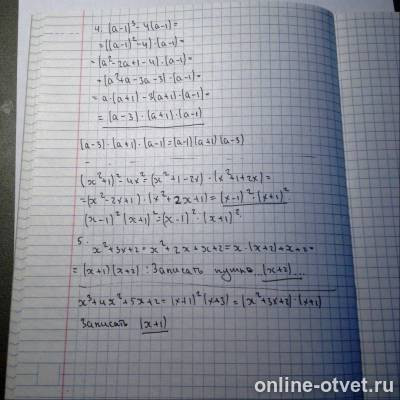 4. (a-1)³-4(a-1)=
=((a-1)²-4)·(a-1)=
=(a²-2a+1-4)·(a-1)=
=(a²+a-3a-3)·(a-1)=
=a·(a+1)-3(a+1)·(a-1)=
=(a-3)·(a+1)·(a-1)
(a-3)·(a+1)·(a-1)=(a-1)(a+1)(a-3)
(x²+1)²-4x²=(x²+1-2x)·(x²+1+2x)=
=(x²-2x+1)·(x²+2x+1)=(x-1)²·(x+1)²
(x-1)²(x+1)²=(x-1)²·(x+1)²
5. x²+3x+2=x²+2x+x+2=x·(x+2)+x+2=
=(x+1)(x+2). Записать нужно (x+2)...
x³+4x²+5x+2=(x+1)²(x+3)=(x²+3x+2)·(x+1)
Записать (x+1)
online-otvet.ru